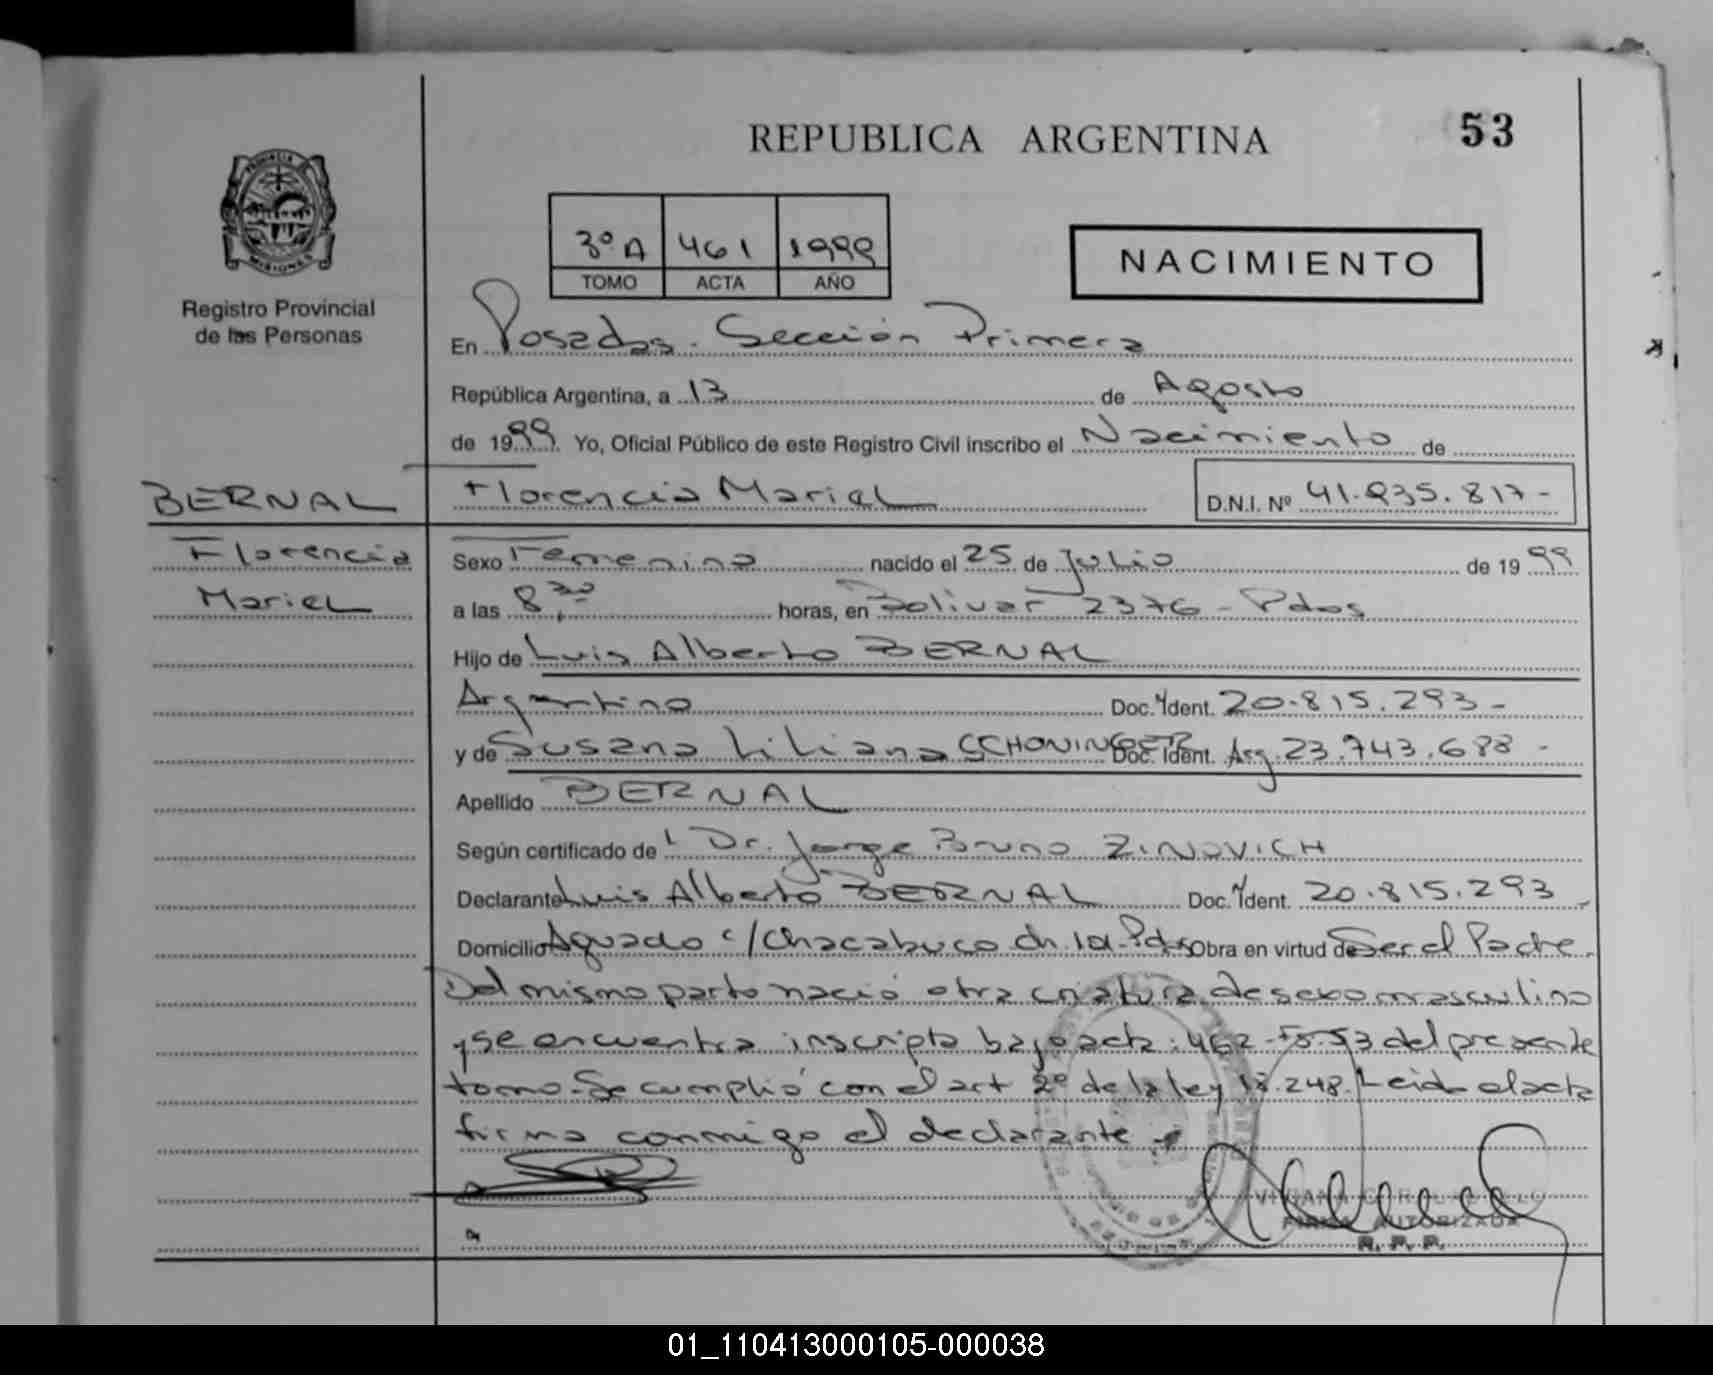 REPUBLICA ARGENTINA
53
PROVINCIA
MISIONES
Registro Provincial
de las Personas
3º A 461 1999
TOMO ACTA AÑO
NACIMIENTO
En Posadas - Sección Primera
República Argentina, a 13 de Agosto
de 1999 Yo, Oficial Público de este Registro Civil inscribo el Nacimiento de
BERNAL
Florencia Mariel
D.N.I. Nº 41.935.817-
Florencia
Mariel
Sexo Femenino nacido el 25 de Julio de 1999
a las 8,30 horas, en Bolivar 2376 - Pdas
Hijo de Luis Alberto BERNAL
Argentino Doc. Ident. 20.815.293-
y de Susana Liliana SCHONINGER Doc. Ident. Arg. 23.743.688 -
Apellido BERNAL
Según certificado de Dr. Jorge Bruno ZINOVICH
Declarante Luis Alberto BERNAL Doc. Ident. 20.815.293
Domicilio Aguado c/ Chacabuco ch. 101-Pdas Obra en virtud de Ser el Padre.
Del mismo parto nació otra criatura de sexo masculino
y se encuentra inscripta bajo acta: 462 - Fº 53 del presente
tomo - Se cumplió con el art 2º de la ley 18.248. Leida el acta
firma conmigo el declarante
FIRMA AUTORIZADA
R. P. P.
01_110413000105-000038